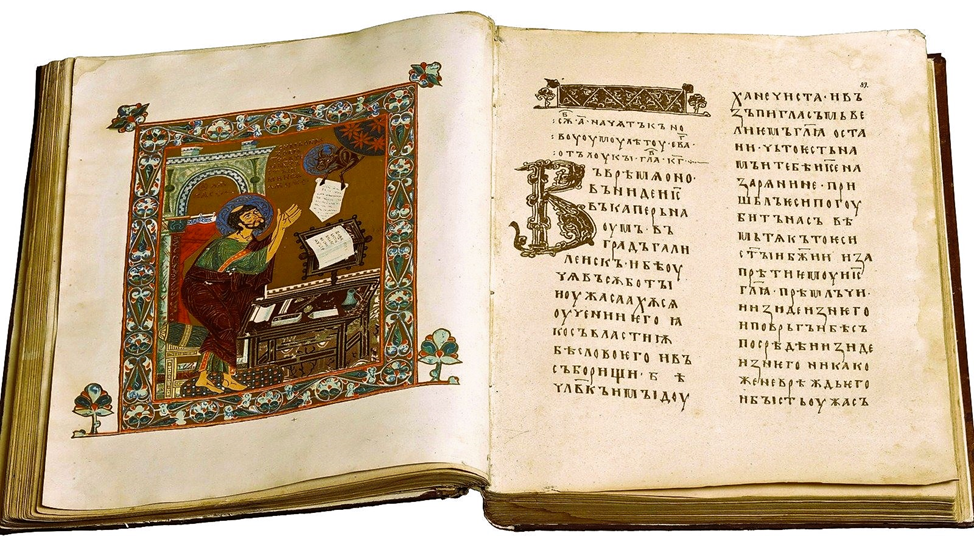 89.
: сѫ҃·а҃·начѧтъкъ но
: воуоумоулѣтоу·ева҃г
: отълоукы·гла҃·кг҃·
Въврѣмѧоно·
въниде і҃с
въкаперьна
оумъ· въ
градъгали
леискъ· ибѣоу
чѧвъсѫботы
иоужасаахѫсѧ
оучениииего ꙗ
косъвластиѭ
бѣсловоего ивъ
съборищи· б ѣ
чл҃вкъимыидоу
ханечиста· ивъ
зъпигласъмьве
лиемьгл҃ѧ оста
ни· чьтоестьна
мъитебѣі҃сена
зарѧнине· при
шьлъесипогоу
битънасъ вѣ
мьтѧкътоеси
ст҃ыибж҃ии иза
прѣтиемоуі҃с
гл҃ѧ· прѣмлъчи·
иизидеизнего
иповрьгъибѣсъ
посредѣиизиде
изнего никако
женеврѣждьего
ибыстьоужасъ